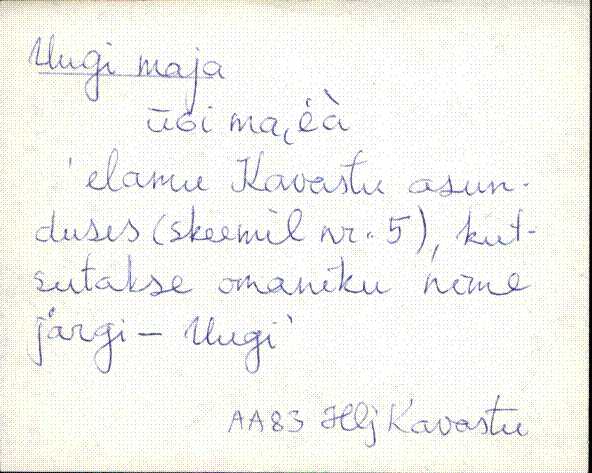 Uugi maja
ūGi ma,éà
'elamu Kavastu asun-
duses (skeemil nr. 5), kut-
sutakse omaniku nime
järgi – Uugi'
AA83 Hlj Kavastu